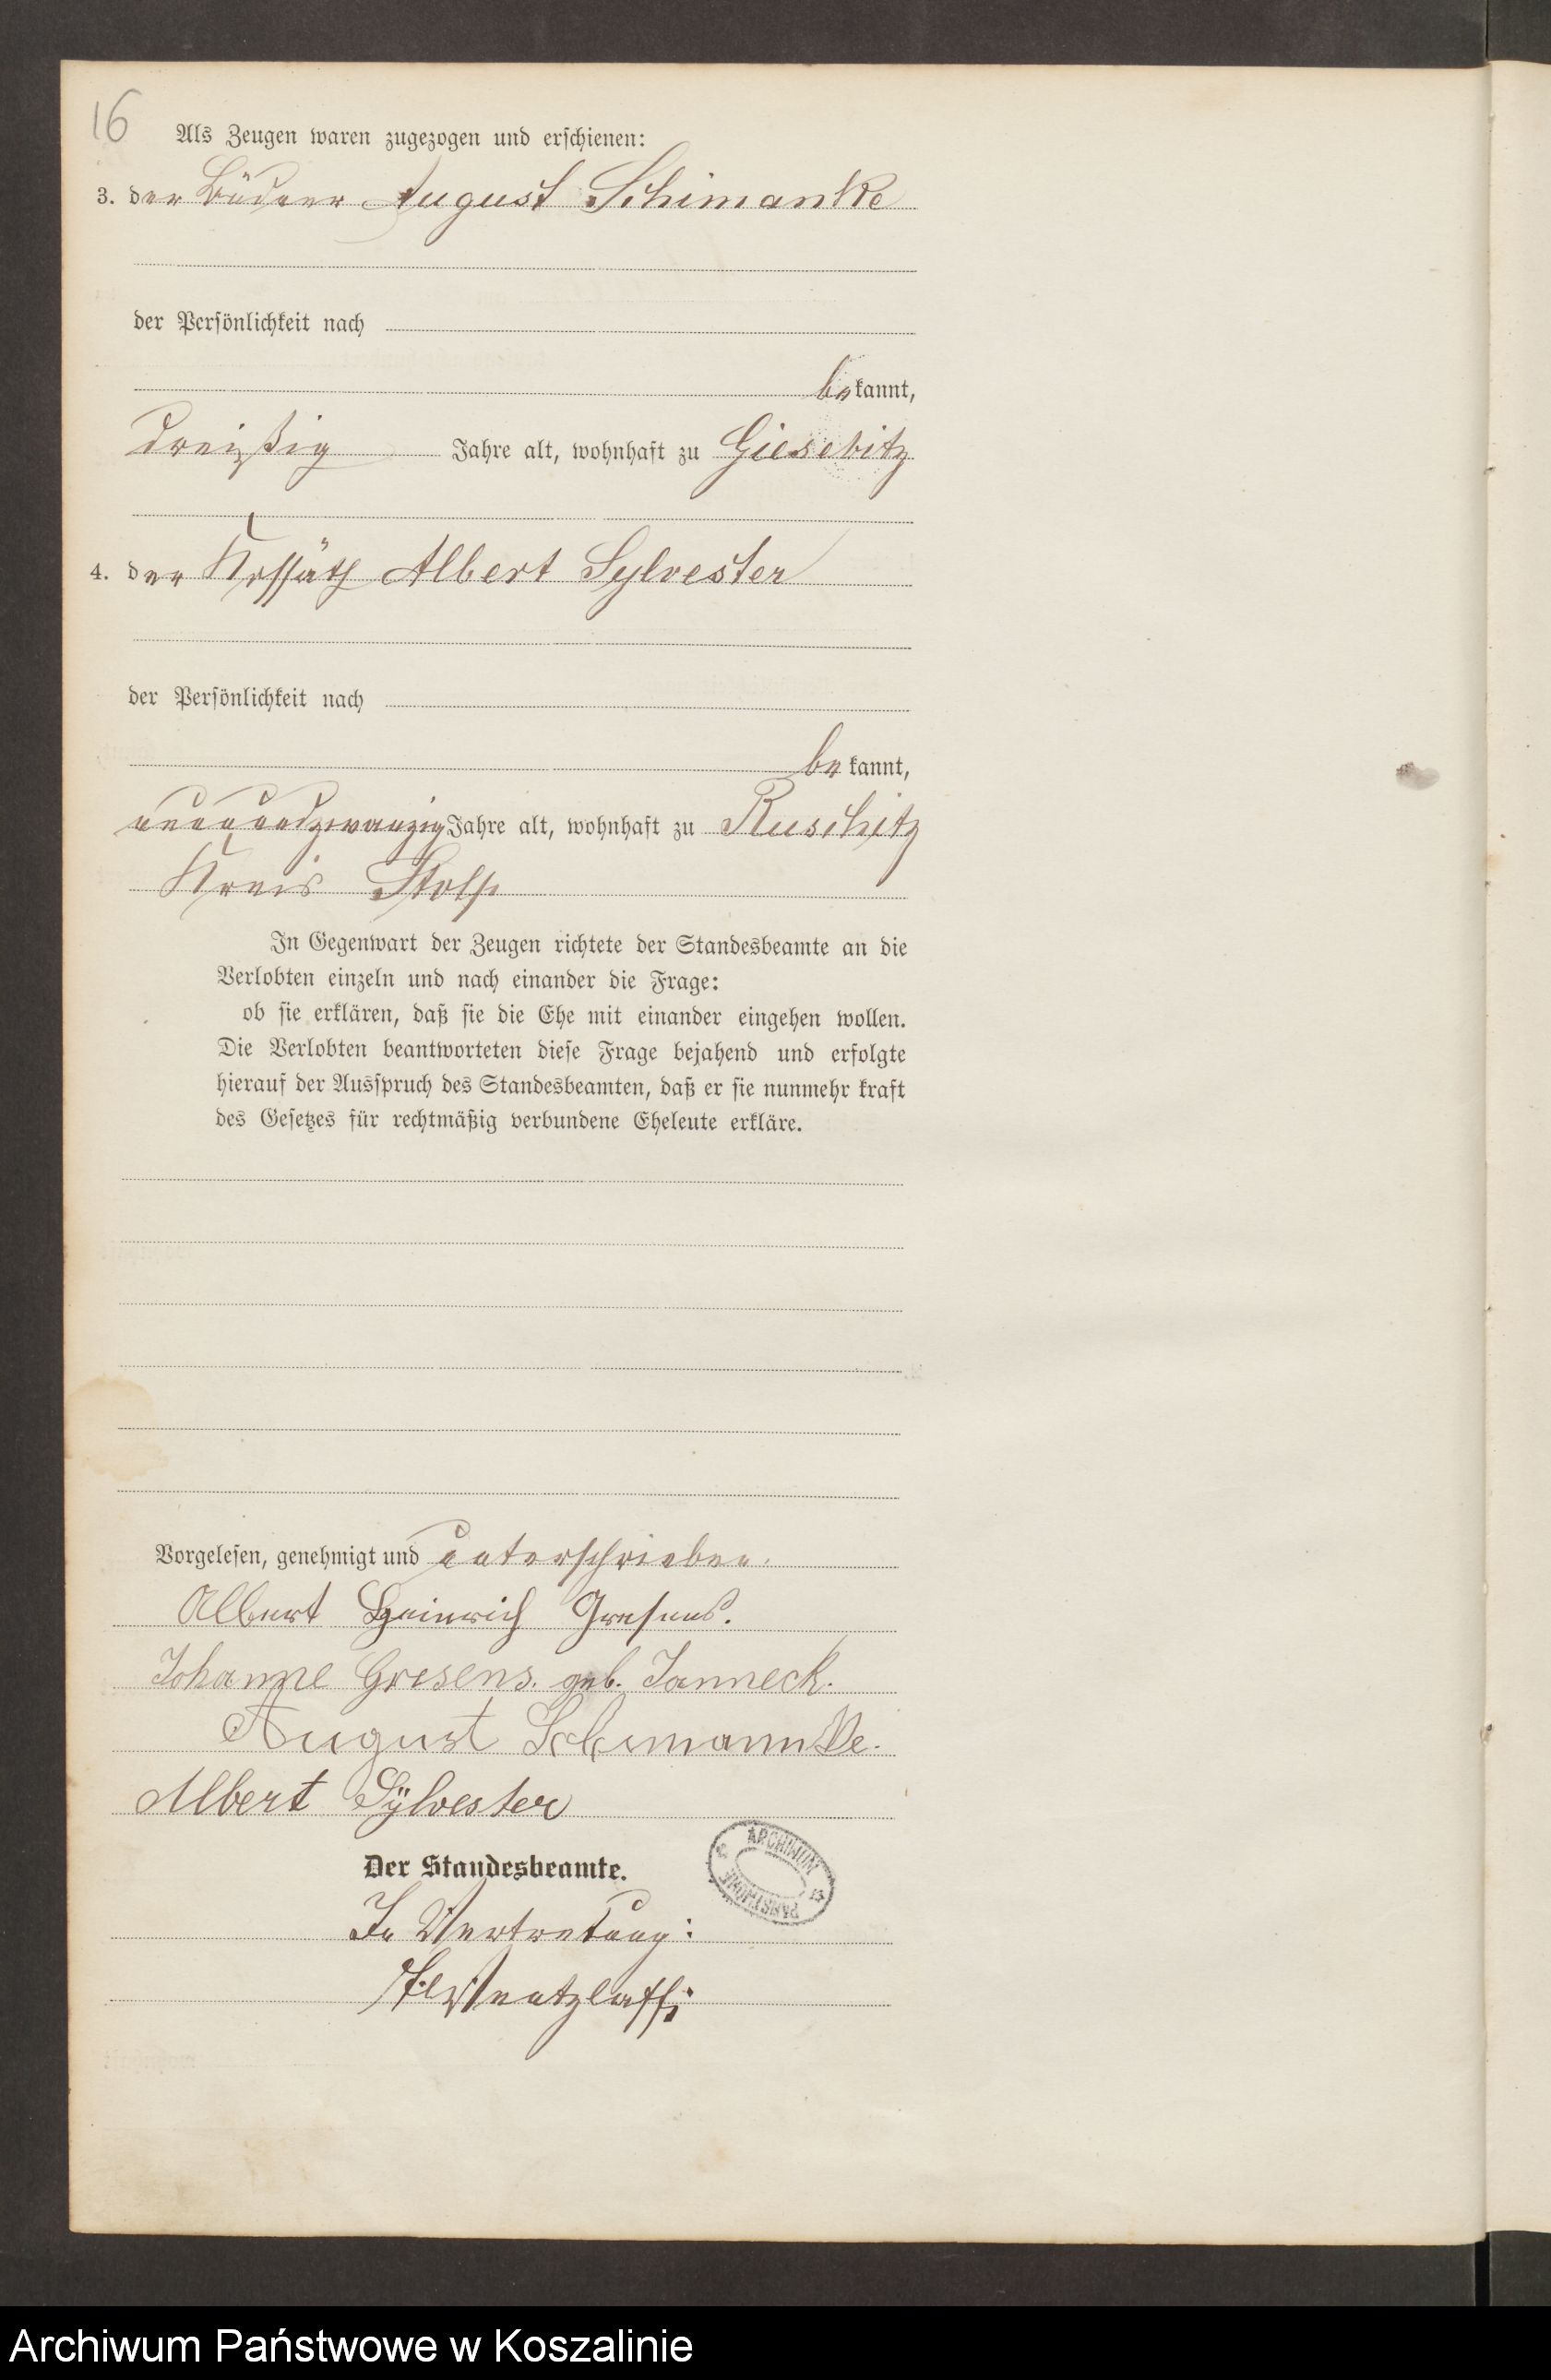 16
Als Zeugen waren zugezogen und erschienen:
3. der Büdner August Schimanke
der Persönlichkeit nach
bekannt,
dreißig Jahre alt, wohnhaft zu Giesebitz
4. der Kossäth Albert Sylvester
der Persönlichkeit nach
bekannt,
neunundzwanzig Jahre alt, wohnhaft zu Ruschitz
Kreis Stolp
In Gegenwart der Zeugen richtete der Standesbeamte an die
Verlobten einzeln und nach einander die Frage:
ob sie erklären, daß sie die Ehe mit einander eingehen wollen.
Die Verlobten beantworteten diese Frage bejahend und erfolgte
hierauf der Ausspruch des Standesbeamten, daß er sie nunmehr kraft
des Gesetzes für rechtmäßig verbundene Eheleute erkläre.
Vorgelesen, genehmigt und unterschrieben.
Albert Heinrich Gresens.
Johanne Gresens. geb. Janneck.
August Schimannke.
Albert Sylvester
ARCHIWUM
PAŃSTWOWE
Der Standesbeamte.
In Vertretung:
Wentzlaff
Archiwum Państwowe w Koszalinie